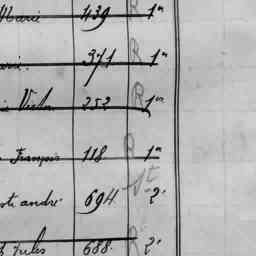 Marie 439 R 1ᵉʳ
371 R 1ᵉʳ
Victor 252 R 1ᵉʳ
François 118 R 1ᵉʳ
andré 694 St 2ᵉ
Jules 688 R 2ᵉ